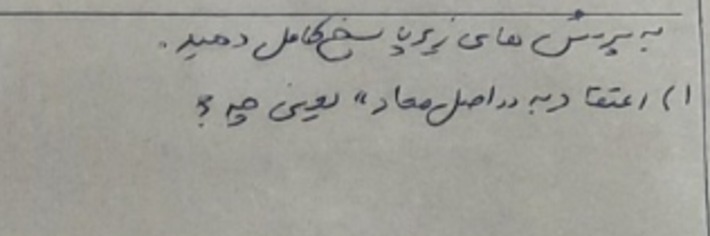 به پرسش های زیر پاسخ کامل دهید.
۱) اعتقاد به «اصل معاد» یعنی چه؟